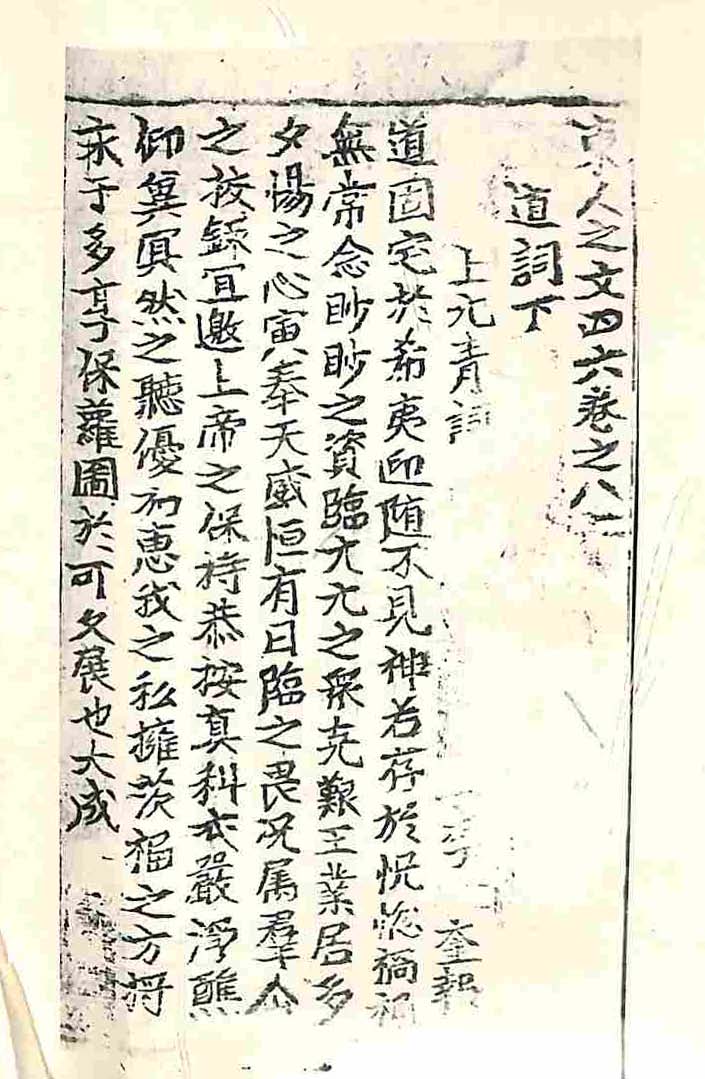 東人之文四六卷之八
道詞下
上元青詞 李 奎報
道固宅於希夷迎隨不見神若存於怳惚禍福
無常念眇眇之資臨亢亢之衆克艱王業居多
夕惕之心寅奉天威恒有日臨之畏况属羣仙
之校録宜邀上帝之保持恭按真科式嚴淨醮
仰冀冥然之聽優加惠我之私擁茨福之方將
永于多享保蘿圖於可久展也大成